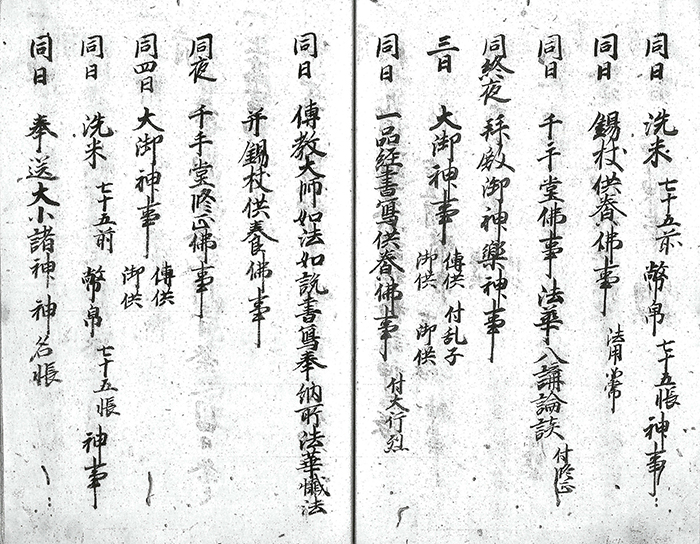 同日 洗米 七十五前 幣帛 七十五帳 神事
同日 錫杖供養佛事 法用常
同日 千手堂佛事 法華八講論談 付修正
同終夜 拜殿御神樂神事
三日 大御神事 傳供 付乱子 御供 御供
同日 一品経書写供養佛事 付大行烈
同日 傳教大師如法如説書寫奉納所法華懴法
并錫杖供養佛事
同夜 千手堂修正佛事
同四日 大御神事 傳供 御供
同日 洗米 七十五前 幣帛 七十五帳 神事
同日 奉送大小諸神 神名帳